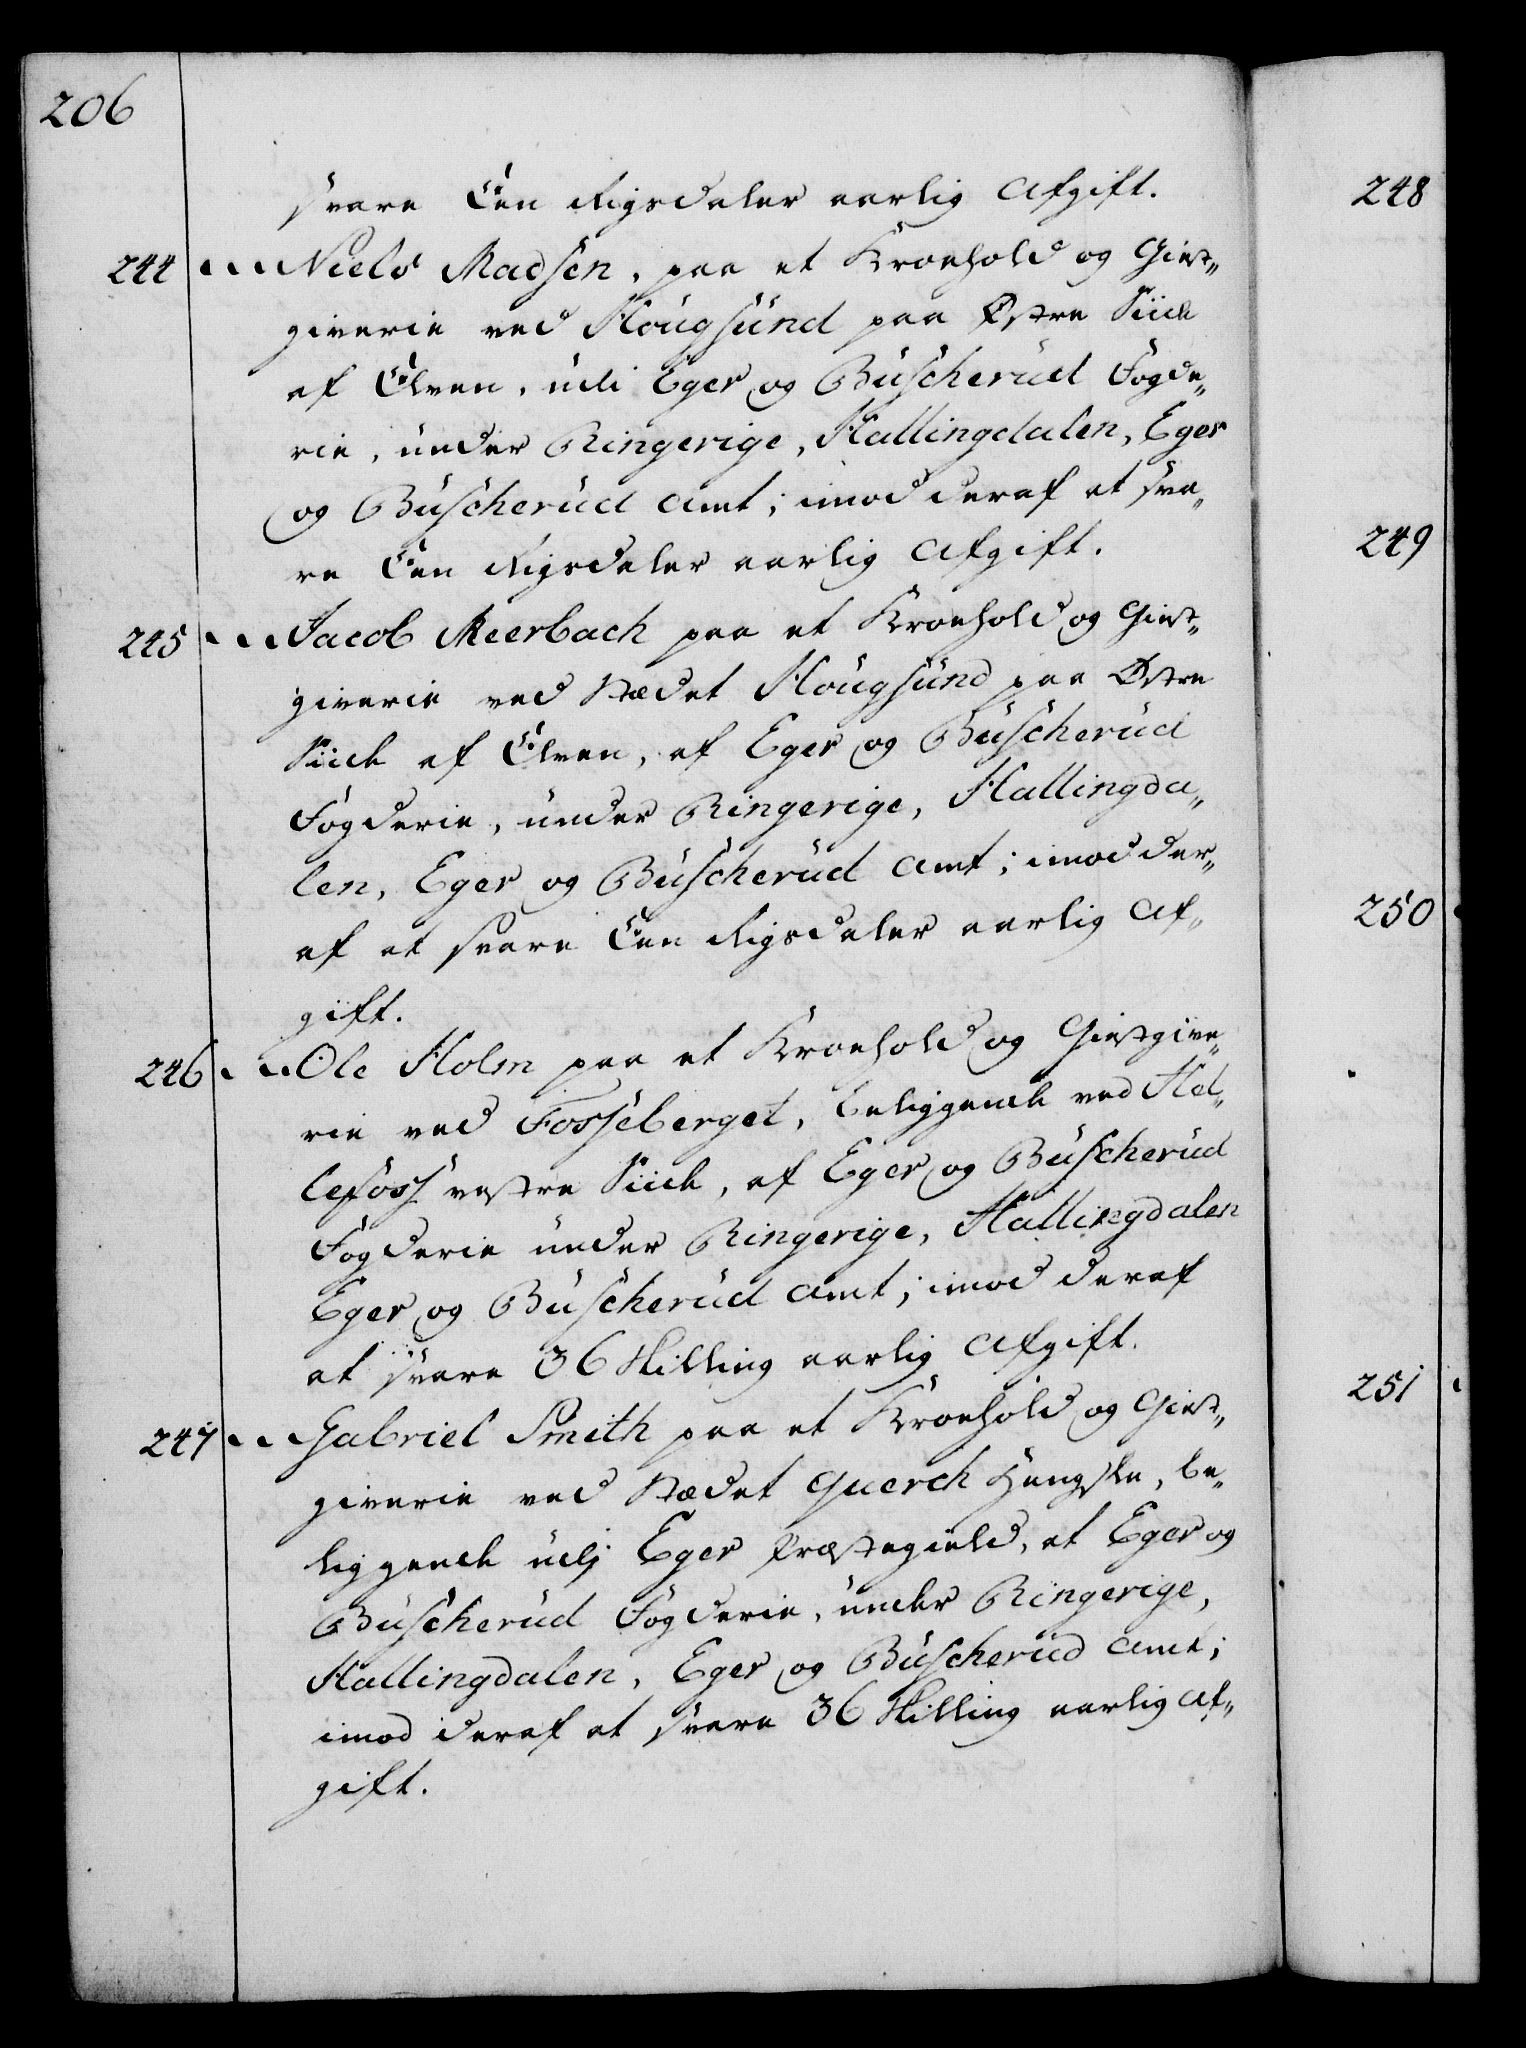 206
svare Een Rigsdaler aarlig Afgift.
244 Niels Madsen, paa et Kroehold og Giest„
giverie ved Hougsund paa Østre Siide
af Elven, udi Eger og Buscherud Fogde„
rie, under Ringerige, Hallingdalen, Eger
og Buscherud Amt; imod deraf at sva„
re Een Rigsdaler aarlig Afgift.
245 Jacob Meerbach paa et Kroehold og Giest„
giverie ved Stædet Hougsund paa Østre
Siide af Elven, af Eger og Buscherud
Fogderie, under Ringerige, Hallingda„
len, Eger og Buscherud Amt; imod der„
af at svare Een Rigsdaler aarlig Af„
gift.
246 Ole Holm paa et Kroehold og Giestgive„
rie ved Fosseberget, beliggende ved Hel„
lefoss vestre Siide, af Eger og Buscherud
Fogderie under Ringerige, Hallingdalen
Eger og Buscherud Amt; imod deraf
at svare 36 Skilling aarlig Afgift.
247 Gabriel Smith paa et Kroehold og Giest„
giverie ved Stædet Querch, be„
liggende udj Eger Præstegield, at Eger og
Buscherud Fogderie, under Ringerige,
Hallingdalen, Eger og Buscherud Amt;
imod deraf at svare 36 Skilling aarlig Af„
gift.
248
249
250
251